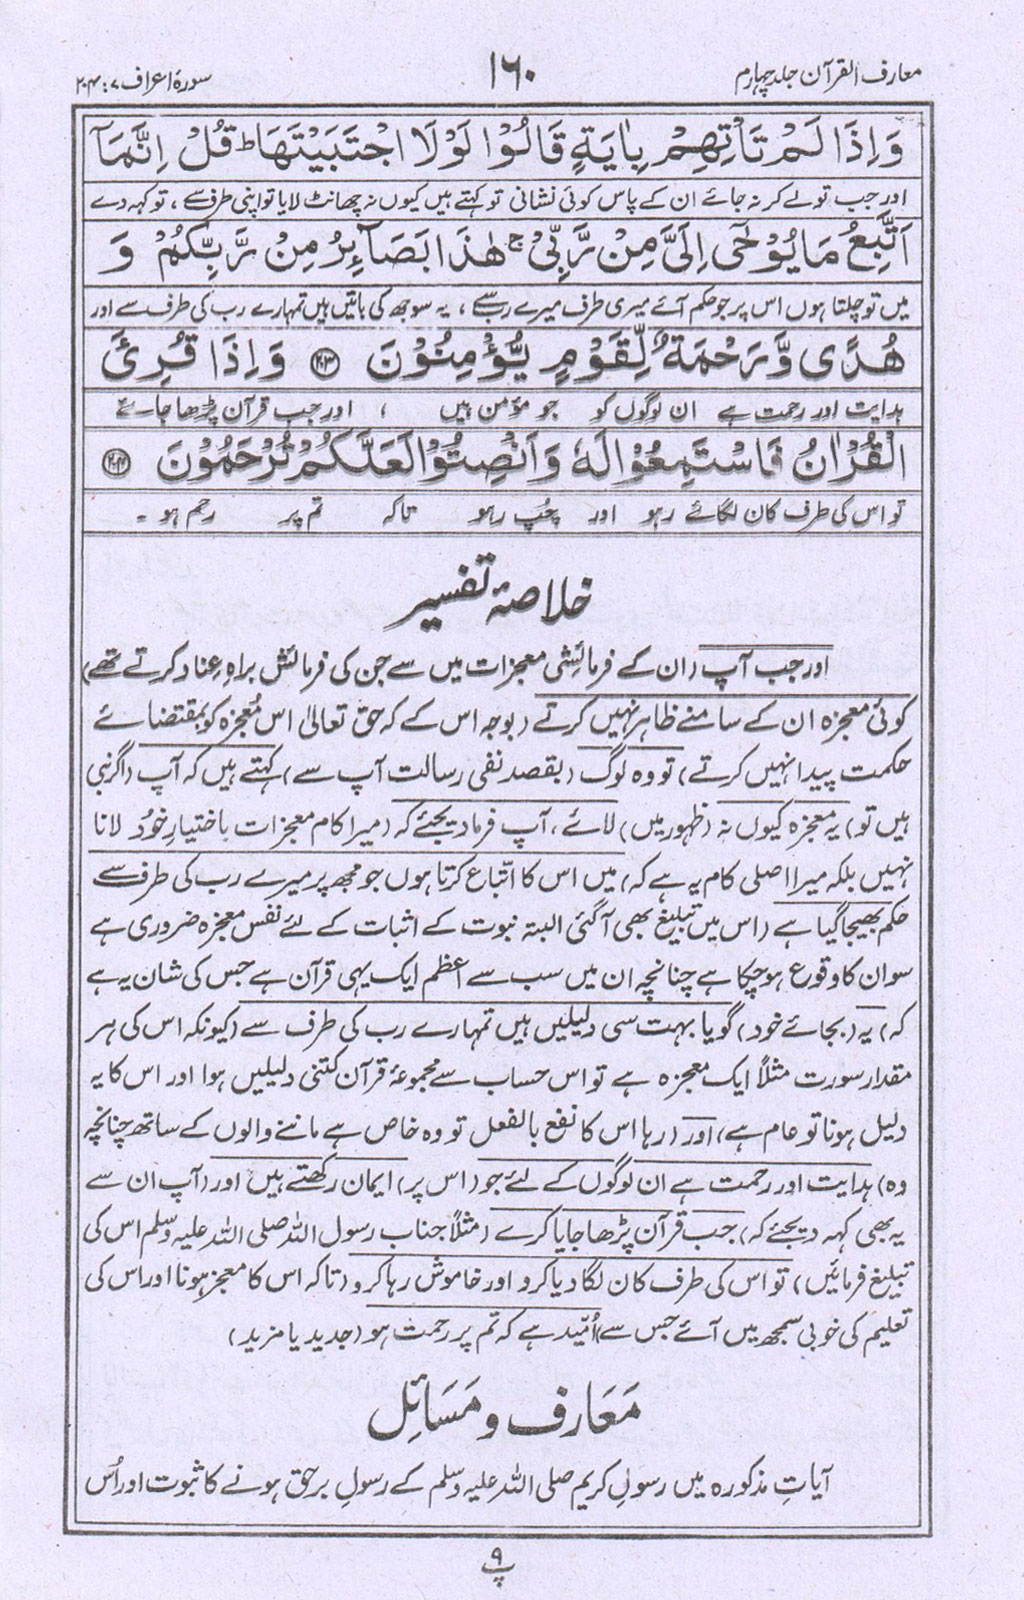 معارف القرآن جلد چہارم
۱۶۰
سورۂ اعراف ۷ : ۲۰۴
وَاِذَا لَمْ تَاْتِهِمْ بِاٰيَةٍ قَالُوْا لَوْلَا اجْتَبَيْتَهَا ؕ قُلْ اِنَّمَآ
اور جب تو لے کر نہ جائے ان کے پاس کوئی نشانی تو کہتے ہیں کیوں نہ چھانٹ لایا تو اپنی طرف سے ، تو کہہ دے
اَتَّبِعُ مَا يُوْحٰٓى اِلَىَّ مِنْ رَّبِّىْ ۚ هٰذَا بَصَآئِرُ مِنْ رَّبِّكُمْ وَ
میں تو چلتا ہوں اس پر جو حکم آئے میری طرف میرے رب سے ، یہ سوجھ کی باتیں ہیں تمہارے رب کی طرف سے اور
هُدًى وَّرَحْمَةٌ لِّقَوْمٍ يُّؤْمِنُوْنَ ۝۲۰۳ وَاِذَا قُرِئَ
ہدایت اور رحمت ہے ان لوگوں کو جو مؤمن ہیں ، اور جب قرآن پڑھا جائے
الْقُرْاٰنُ فَاسْتَمِعُوْا لَهٗ وَاَنْصِتُوْا لَعَلَّكُمْ تُرْحَمُوْنَ ۝۲۰۴
تو اس کی طرف کان لگائے رہو اور چپ رہو تاکہ تم پر رحم ہو ۔
خلاصۂ تفسیر
اور جب آپ (ان کے فرمائشی معجزات میں سے جن کی فرمائش براہِ عناد کرتے تھے)
کوئی معجزہ ان کے سامنے ظاہر نہیں کرتے (بوجہ اس کے کہ حق تعالیٰ اس معجزہ کو بمقتضائے
حکمت پیدا نہیں کرتے) تو وہ لوگ (بقصد نفی رسالت آپ سے) کہتے ہیں کہ آپ (اگر نبی
ہیں تو) یہ معجزہ کیوں نہ (ظہور میں) لائے ، آپ فرما دیجئے کہ (میرا کام معجزات باختیارِ خود لانا
نہیں بلکہ میرا اصلی کام یہ ہے کہ) میں اس کا اتباع کرتا ہوں جو مجھ پر میرے رب کی طرف سے
حکم بھیجا گیا ہے (اس میں تبلیغ بھی آگئی البتہ نبوت کے اثبات کے لئے نفس معجزہ ضروری ہے
سو ان کا وقوع ہو چکا ہے چنانچہ ان میں سب سے اعظم ایک یہی قرآن ہے جس کی شان یہ ہے
کہ) یہ (بجائے خود) گویا بہت سی دلیلیں ہیں تمہارے رب کی طرف سے (کیونکہ اس کی ہر
مقدار سورت مثلاً ایک معجزہ ہے تو اس حساب سے مجموعۂ قرآن کتنی دلیلیں ہوا اور اس کا یہ
دلیل ہونا تو عام ہے) اور (رہا اس کا نفع بالفعل تو وہ خاص ہے ماننے والوں کے ساتھ چنانچہ
وہ) ہدایت اور رحمت ہے ان لوگوں کے لئے جو (اس پر) ایمان رکھتے ہیں اور (آپ ان سے
یہ بھی کہہ دیجئے کہ) جب قرآن پڑھا جایا کرے (مثلاً جناب رسول اللہ صلی اللہ علیہ وسلم اس کی
تبلیغ فرمائیں) تو اس کی طرف کان لگا دیا کرو اور خاموش رہا کرو (تاکہ اس کا معجز ہونا اور اس کی
تعلیم کی خوبی سمجھ میں آئے جس سے) اُمّید ہے کہ تم پر رحمت ہو (جدید یا مزید)
مَعَارف و مَسَائِل
آیاتِ مذکورہ میں رسولِ کریم صلی اللہ علیہ وسلم کے رسولِ برحق ہونے کا ثبوت اور اُس
۹